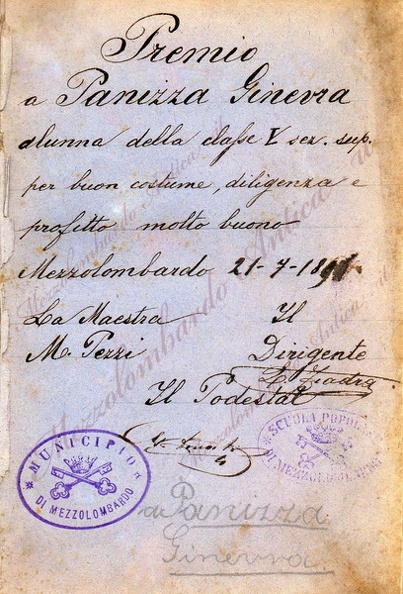 Premio
a Panizza Ginevra
alunna della classe V sez. sup.
per buon costume, diligenza e
profitto molto buono
Mezzolombardo 21-7-189
La Maestra Il
M. Pezzi Dirigente
Il Podestà
MUNICIPIO
DI MEZZOLOMBARDO
SCUOLA POPOLARE
DI MEZZOLOMBARDO
a Panizza
Ginevra.
Mezzolombardo Antica.it